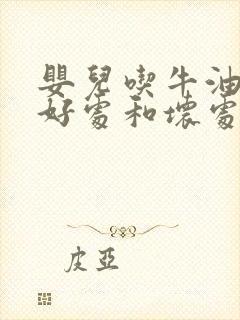 嬰兒喫牛油
好處和壞處
皮亞